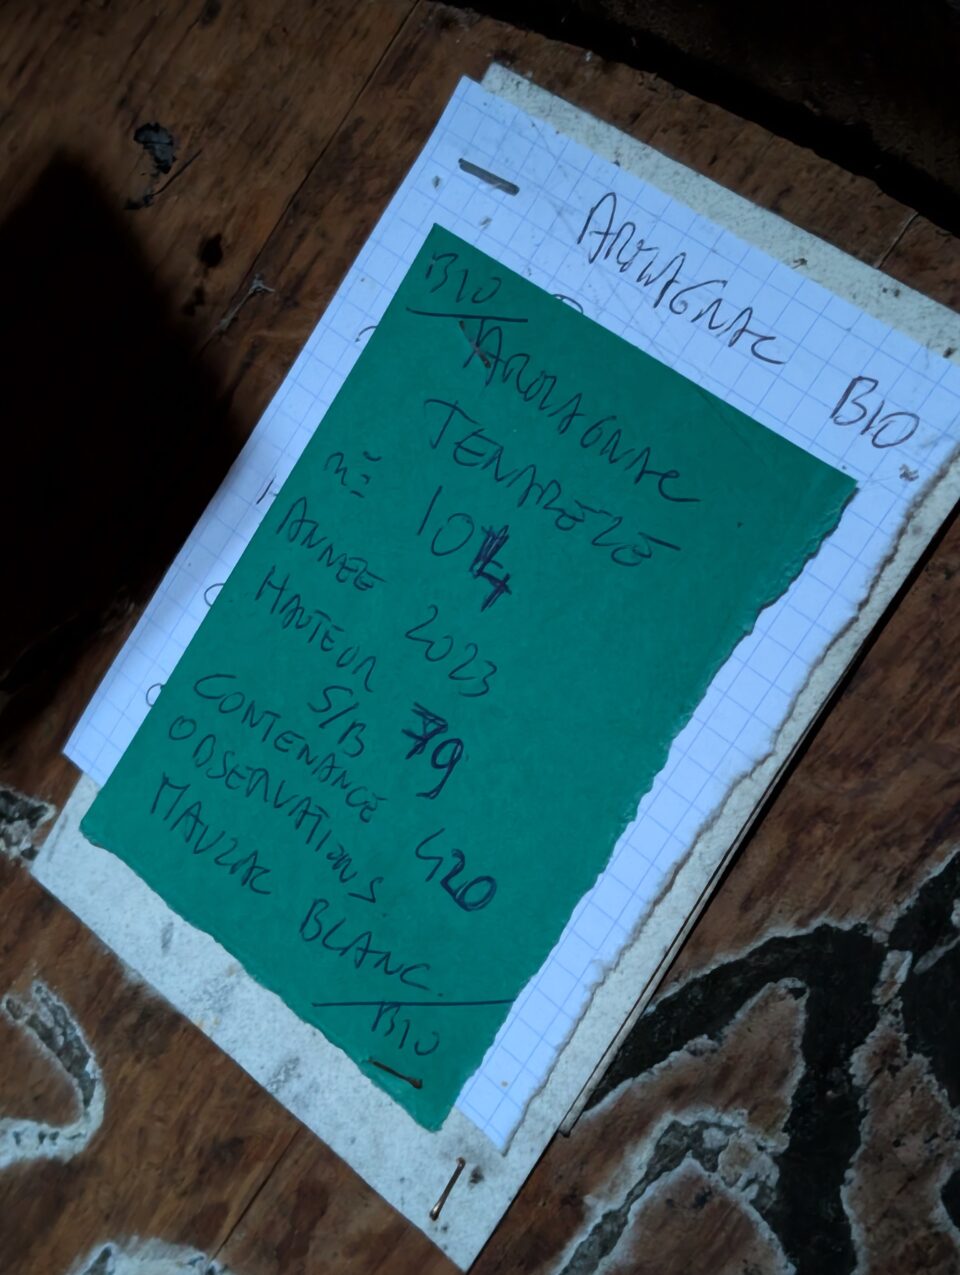 ARMAGNAC BIO
BIO
ARMAGNAC
TENAREZE
n° 104
ANNEE 2023
HAUTEUR S/B 79
CONTENANCE 420
OBSERVATIONS
MAUZAC BLANC
BIO